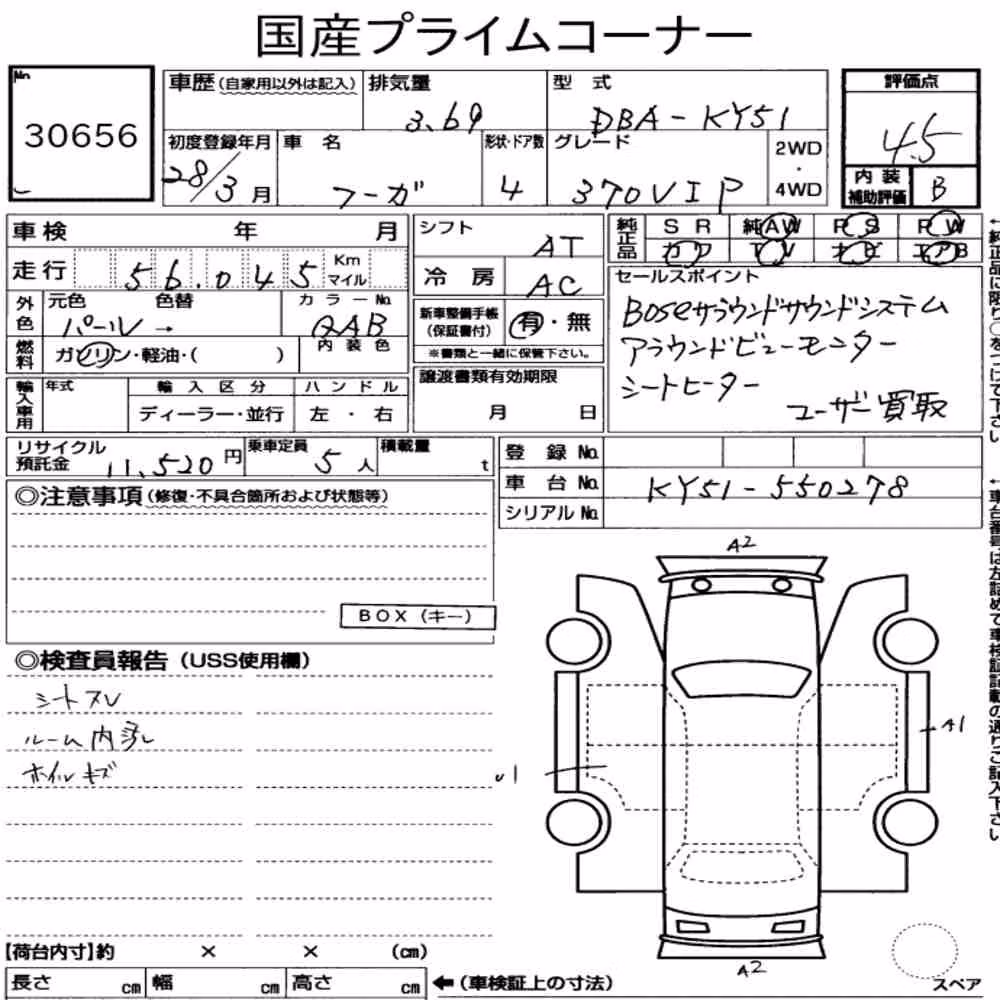 国産プライムコーナー
No. 30656
車歴(自家用以外は記入) 排気量 3.69 型式 DBA-KY51
評価点 4.5
初度登録年月 28/3月 車名 フーガ 形状・ドア数 4 グレード 370VIP 2WD・4WD
内装補助評価 B
車検 年 月
走行 56.045 Km マイル
外色 元色 パール→ 色替 カラーNo. QAB
燃料 ガソリン・軽油・( ) 内装色
輸入車用 年式 輸入区分 ディーラー・並行 ハンドル 左・右
シフト AT
冷房 AC
新車整備手帳(保証書付) 有・無
※書類と一緒に保管下さい。
譲渡書類有効期限
月 日
純正品 SR 純AW PS PW
カワ TV ナビ エアB
セールスポイント
BOSEサラウンドサウンドシステム
アラウンドビューモニター
シートヒーター
ユーザー買取
←純正品に限り○をつけて下さい
リサイクル預託金 11,520円 乗車定員 5人 積載量 t
登録No.
車台No. KY51-550278
シリアルNo.
←車台番号は左詰めで車検証記載の通りご記入下さい
◎注意事項(修復・不具合箇所および状態等)
BOX(キー)
◎検査員報告(USS使用欄)
シートスレ
ルーム内汚レ
ホイルキズ
A2
A1
U1
A2
スペア
【荷台内寸】約 × × (cm)
長さ cm 幅 cm 高さ cm ←(車検証上の寸法)